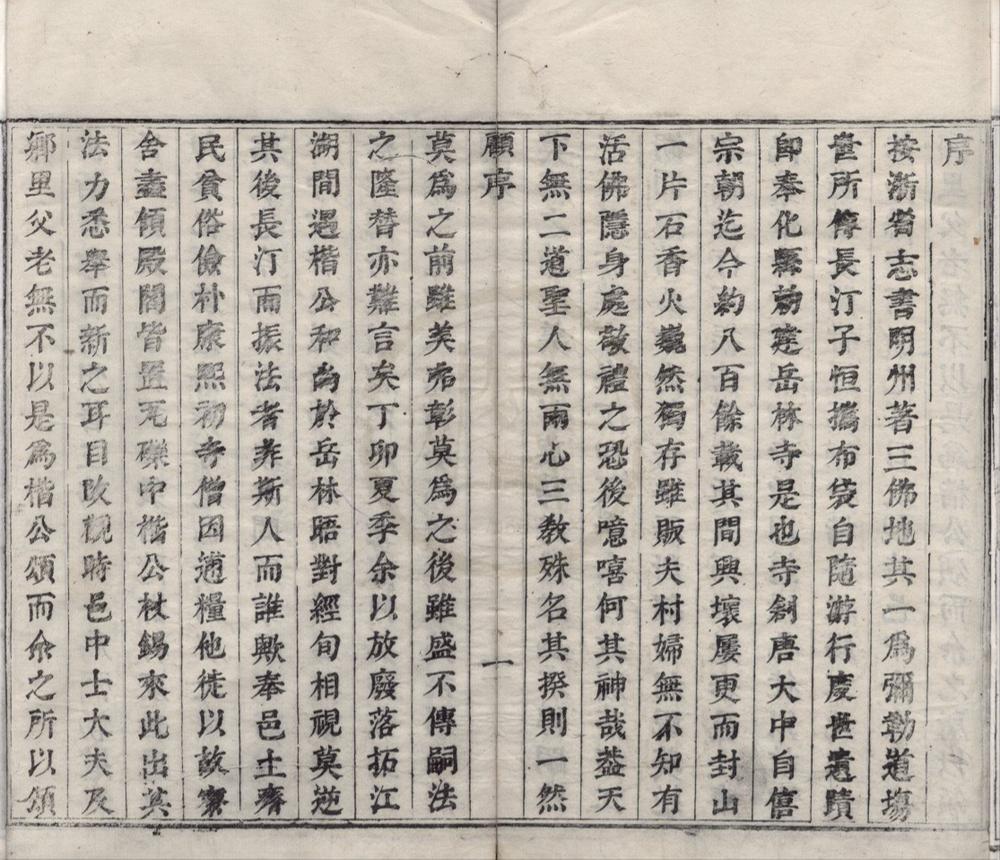 序
按浙省志書明州著三佛地其一爲彌勒道塲
世所傳長汀子恒攜布袋自隨游行處世遺蹟
即奉化縣勑建岳林寺是也寺創唐大中自僖
宗朝迄今約八百餘載其間興壞屢更而封山
一片石香火巍然獨存雖販夫村婦無不知有
活佛隱身處敬禮之恐後噫嘻何其神哉葢天
下無二道聖人無兩心三教殊名其揆則一然
顧序
一
莫爲之前雖美弗彰莫爲之後雖盛不傳嗣法
之隆替亦難言矣丁卯夏季余以放廢落拓江
湖間遇楷公和尙於岳林晤對經旬相視莫逆
其後長汀而振法者非斯人而誰歟奉邑土瘠
民貧俗儉朴康熙初寺僧因逋糧他徙以故寮
舍盡傾殿閣皆置瓦礫中楷公杖錫來此出其
法力悉舉而新之耳目改觀時邑中士大夫及
鄉里父老無不以是爲楷公頌而余之所以頌